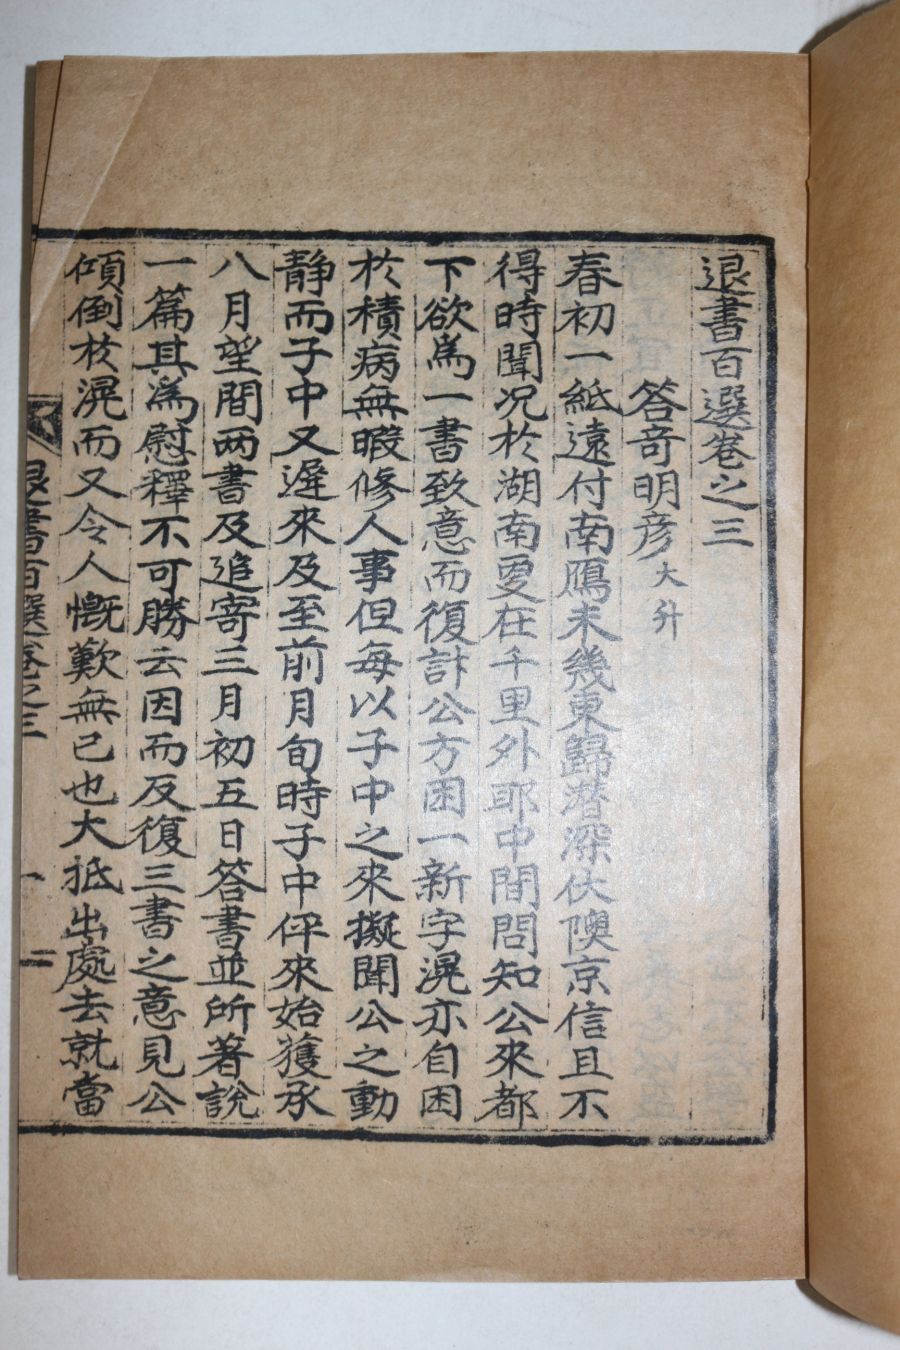 退書百選卷之三
答奇明彦 大升
春初一紙遠付南鴈未幾東歸潜深伏隩京信且不
得時聞况於湖南更在千里外耶中間問知公來都
下欲爲一書致意而復計公方困一新字滉亦自困
於積病無暇修人事但每以子中之來擬聞公之動
静而子中又遲來及至前月旬時子中伻來始獲承
八月望間两書及追寄三月初五日答書並所著說
一篇其爲慰釋不可勝云因而反復三書之意見公
傾倒於滉而又令人慨歎無已也大抵出處去就當
退書百選卷之三 一